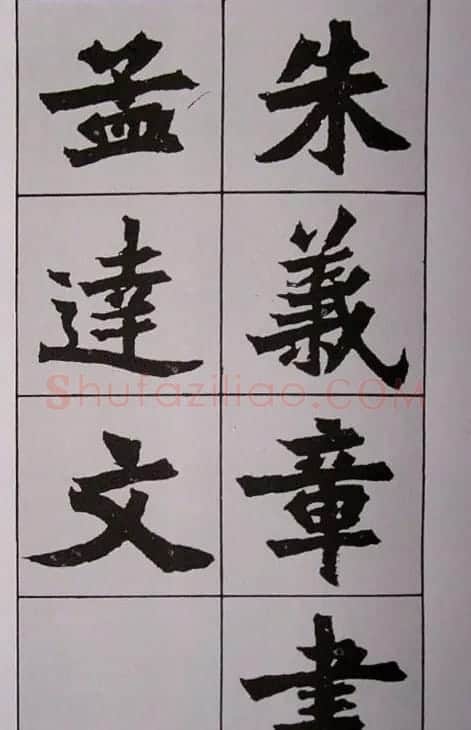 朱義章書
孟達文
Shufaziliao.COM